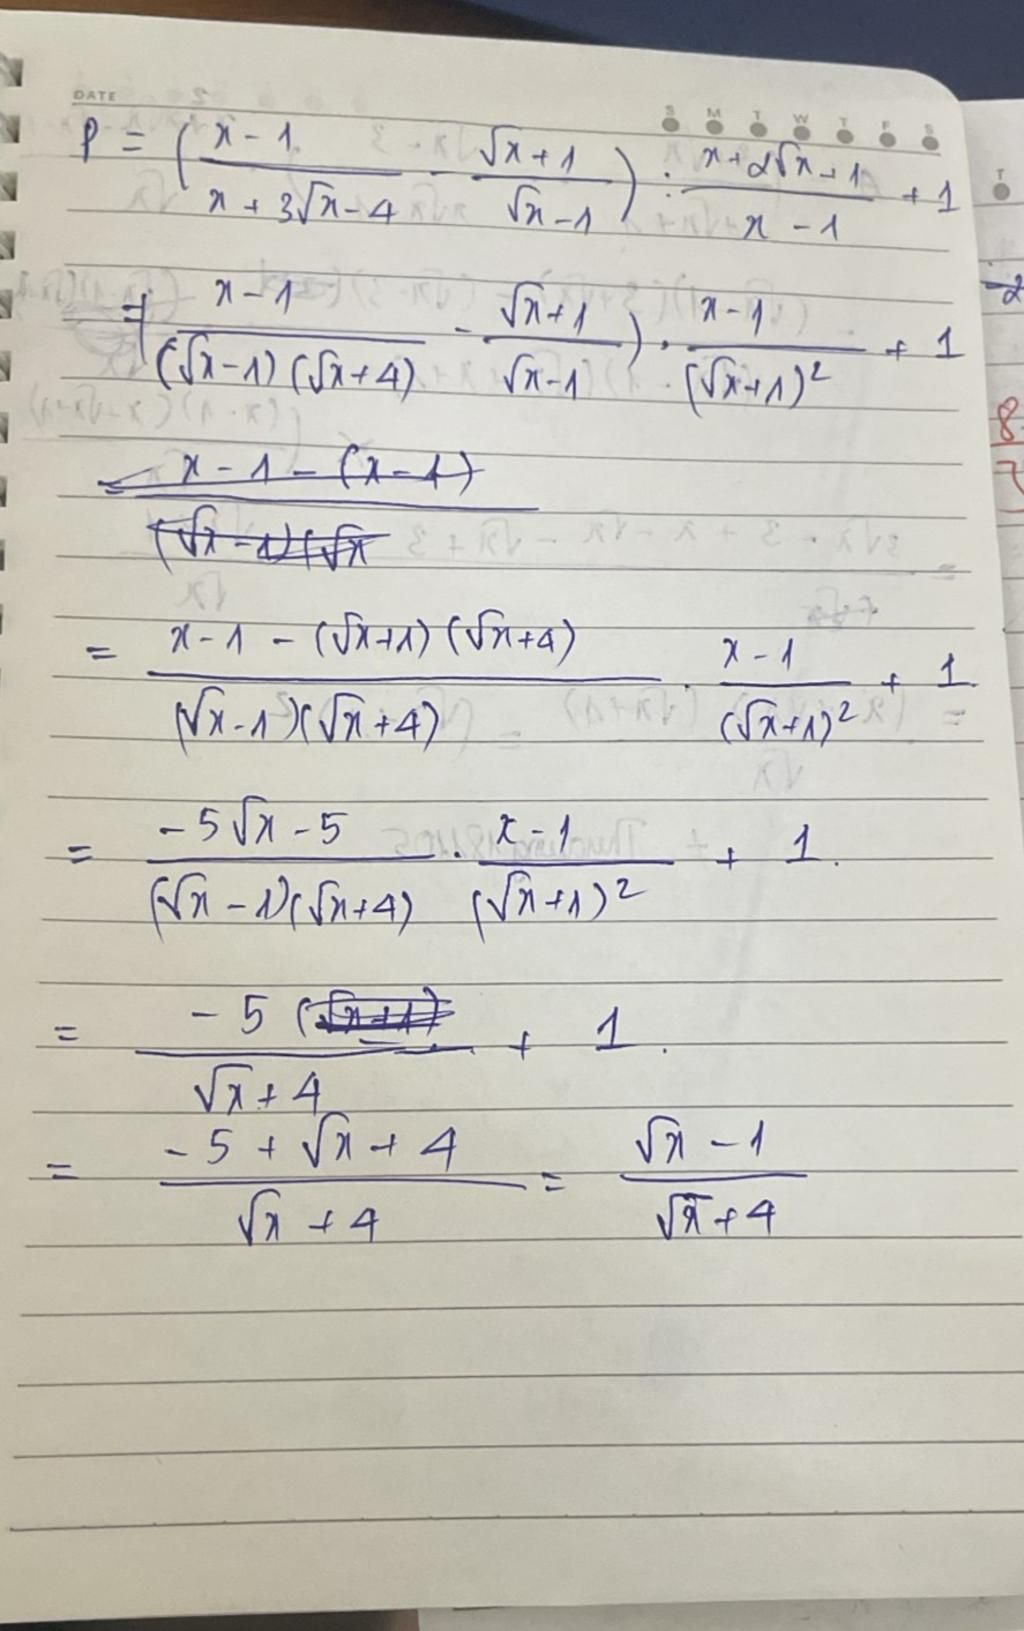 DATE
S M T W T F S
P = ( x - 1 / x + 3√x - 4 - √x + 1 / √x - 1 ) : x + 2√x + 1 / x - 1 + 1
= ( x - 1 / (√x - 1)(√x + 4) - √x + 1 / √x - 1 ) . x - 1 / (√x + 1)² + 1
= x - 1 - (x - 1) / (√x - 1)(√x
= x - 1 - (√x + 1)(√x + 4) / (√x - 1)(√x + 4) . x - 1 / (√x + 1)² + 1
= -5√x - 5 / (√x - 1)(√x + 4) . x - 1 / (√x + 1)² + 1.
= -5 (√x + 1) / √x + 4 + 1.
= -5 + √x + 4 / √x + 4 = √x - 1 / √x + 4
T
-2
8
7